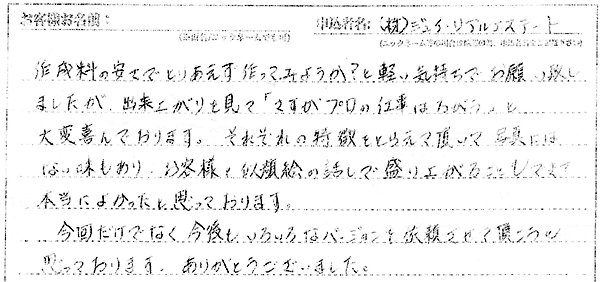 お客様お名前： 申込者名：(株)ジェイ・リアルエステート
作成料の安さでとりあえず作ってみようか？と軽い気持ちでお願い致し
ましたが、出来上がりを見て「さすがプロの仕事はちがう」と
大変喜んでおります。それぞれの特徴をとらえて頂いて写真には
ない味もあり、お客様と似顔絵の話しで盛り上がることもできて
本当によかったと思っております。
今回だけでなく今後もいろいろなバージョンを依頼させて頂こうと
思っております。ありがとうございました。